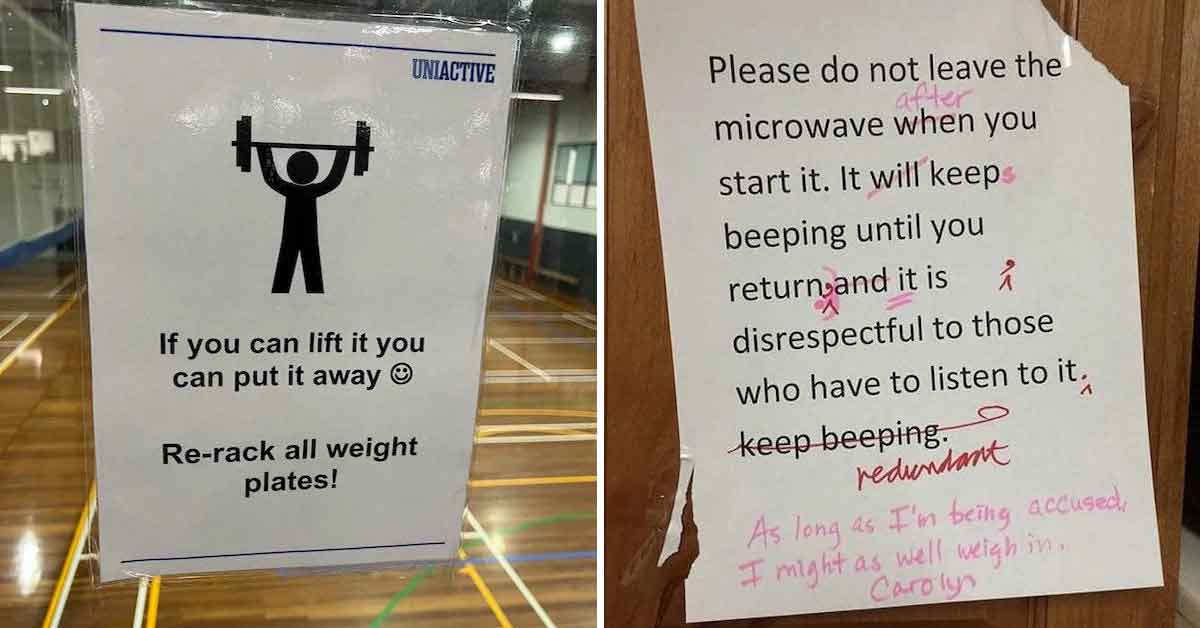 UNIACTIVE
If you can lift it you
can put it away ☺
Re-rack all weight
plates!
Please do not leave the
after
microwave when you
start it. It will keeps
beeping until you
return, and it is
disrespectful to those
who have to listen to it.
keep beeping.
redundant
As long as I'm being accused,
I might as well weigh in.
Carolyn